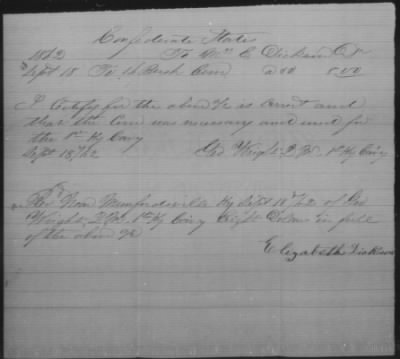 Confederate States
1862 To Mrs E. Dickson Dr
Sept 18 To 16 Bush Corn 8.00
I certify for the above % is correct and
that the Corn was necessary and used for
the 1st Ky Cavy
Sept 18/62 Geo Wright 1st Ky Cavy
Near Munfordsville Ky Sept 18/62 of Geo
Wright 1st Ky Cavy Eight Dollars in full
of the above %
Elizabeth Dickson